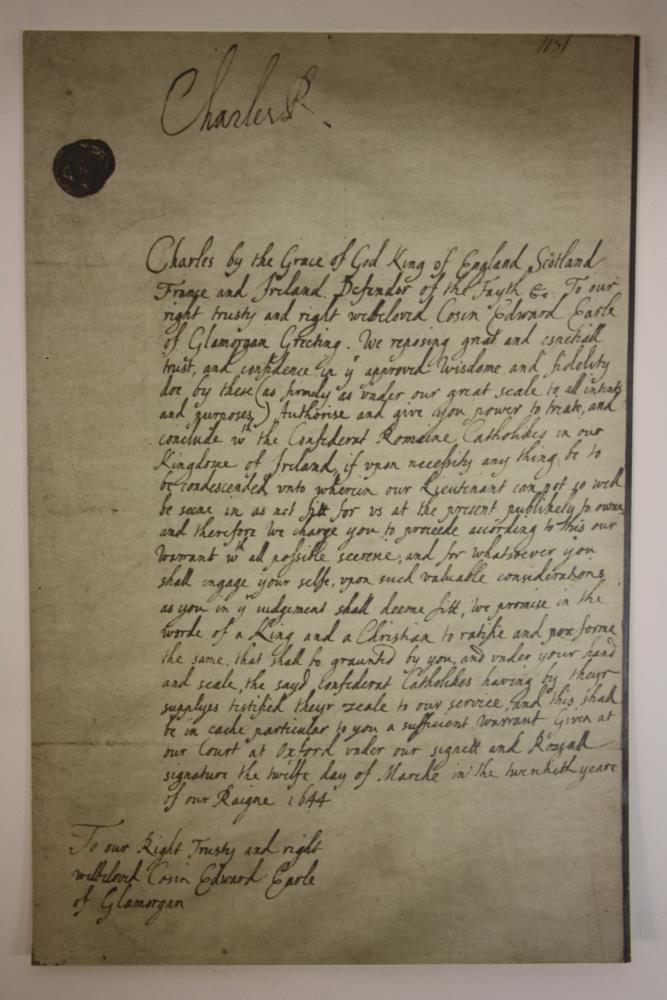 1151
Charles R.
Charles by the Grace of God King of England Scotland
France and Ireland Defendor of the Fayth &c. To our
right trusty and right welbeloved Cosin Edward Earle
of Glamorgan Greeting. We reposing great and espetiall
trust, and confidence in yr approved Wisdome and fidelity
doe by these (as firmely as vnder our great seale to all intents
and purposes,) Authorise and give you power to treate, and
conclude wth the Confederat Romaine Catholikes in our
Kingdome of Ireland, if vpon necessity any thing be to
be condescended vnto wherein our Lieutenant can not so well
be seene in as not fitt for vs at the present publikely to owne
and therefore We charge you to proceede according to this our
Warrant wth all possible secresie, and for whatsoever you
shall ingage your selfe, vpon such valuable considerations
as you in yr iudgement shall deeme fitt, We promise in the
worde of a King and a Christian to ratifie and performe
the same, that shall be graunted by you, and vnder your hand
and seale, the sayd Confederat Catholikes having by theyr
supplyes testified theyr zeale to our service, and this shall
be in eache particular to you a sufficient Warrant Given at
our Court at Oxford vnder our signett and Royall
signature the twelfe day of Marche in the twentieth yeare
of our Raigne 1644
To our Right Trusty and right
welbeloved Cosin Edward Earle
of Glamorgan